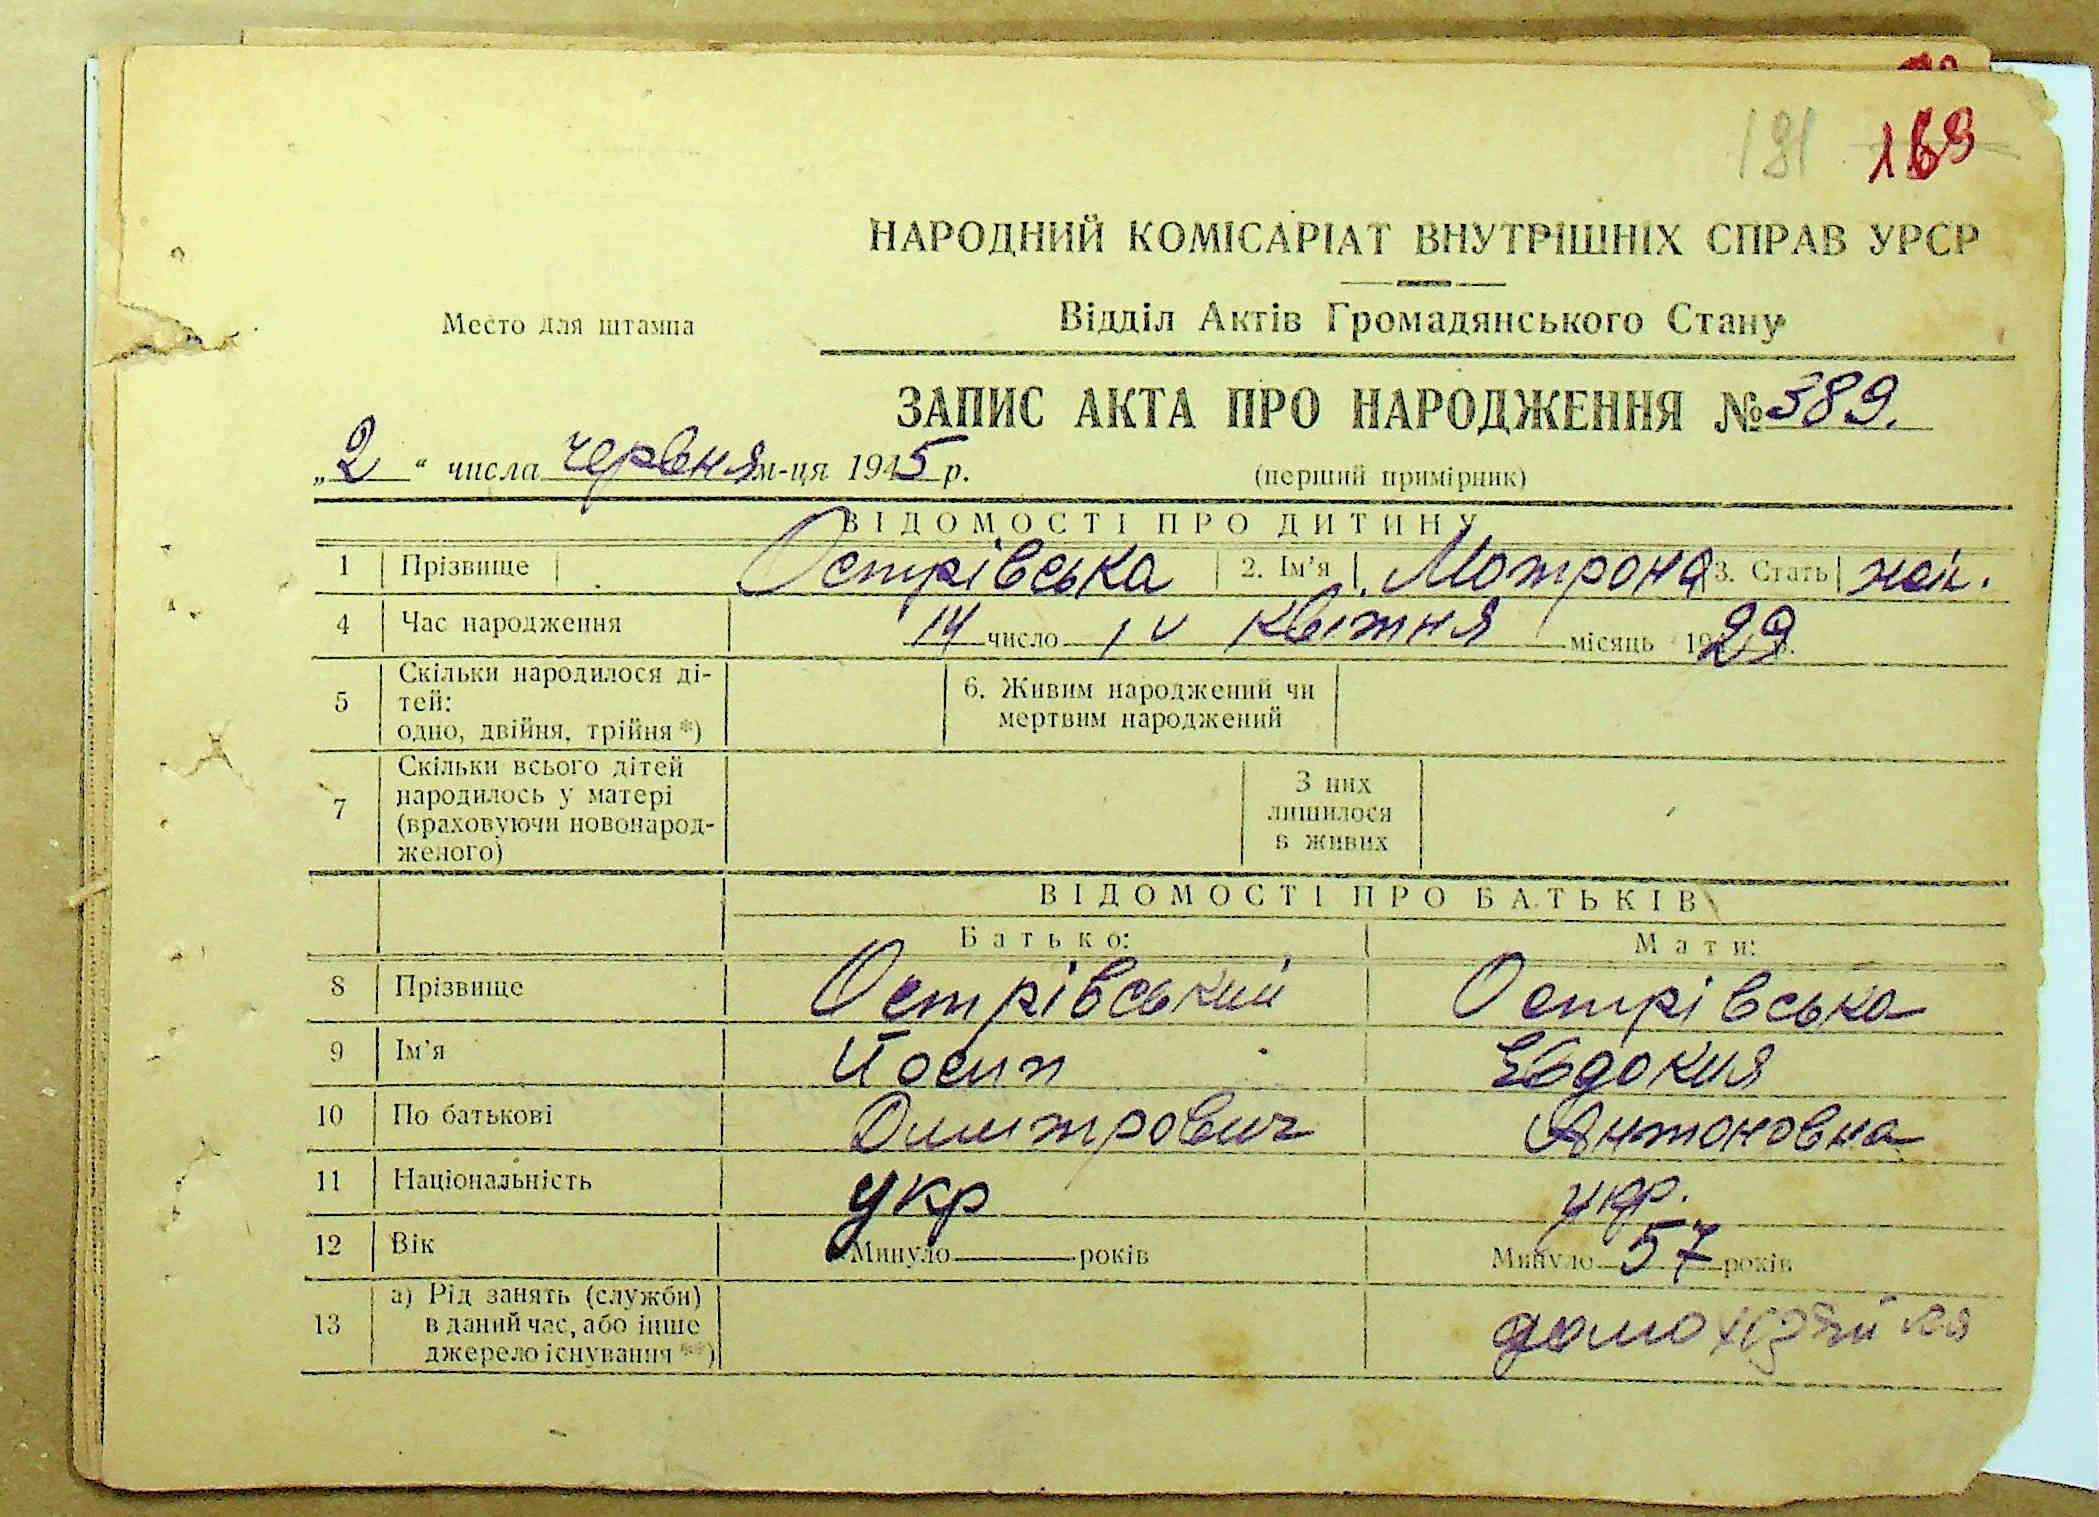 181 168
НАРОДНИЙ КОМІСАРІАТ ВНУТРІШНІХ СПРАВ УРСР
Место для штампа
Відділ Актів Громадянського Стану
ЗАПИС АКТА ПРО НАРОДЖЕННЯ № 389.
„2“ числа червня м-ця 1945 р. (перший примірник)
ВІДОМОСТІ ПРО ДИТИНУ
1 Прізвище Острівська 2. Ім'я Мотрона 3. Стать жін.
4 Час народження 14 число IV квітня місяць 1929
5 Скільки народилося ді-
тей:
одно, двійня, трійня *)
6. Живим народжений чи
мертвим народжений
7 Скільки всього дітей
народилось у матері
(враховуючи новонарод-
женого)
З них
лишилося
в живих
ВІДОМОСТІ ПРО БАТЬКІВ
Батько: Мати:
8 Прізвище Острівський Острівська
9 Ім'я Йосип Евдокия
10 По батькові Димитрович Антоновна
11 Національність укр укр.
12 Вік Минуло років Минуло 57 років
13 а) Рід занять (служби)
в даний час, або інше
джерело існування **)
домохозяйка